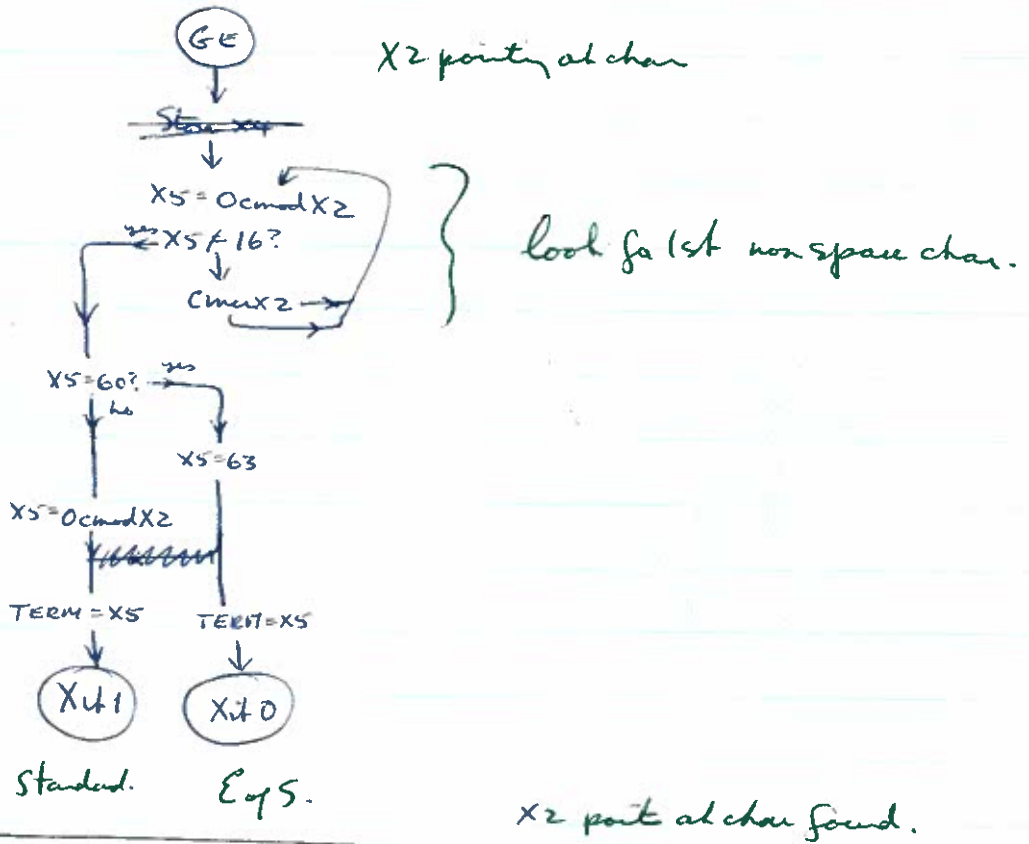 GE
X2 pointing at char
X5 = 0cmodX2
yes X5 ≠ 16?
look fo 1st non space char.
CmcrX2
X5=60? yes
no
X5=63
X5=0cmodX2
TERM=X5 TERM=X5
Xit 1 Xit 0
Standard. E of S.
X2 point at char found.